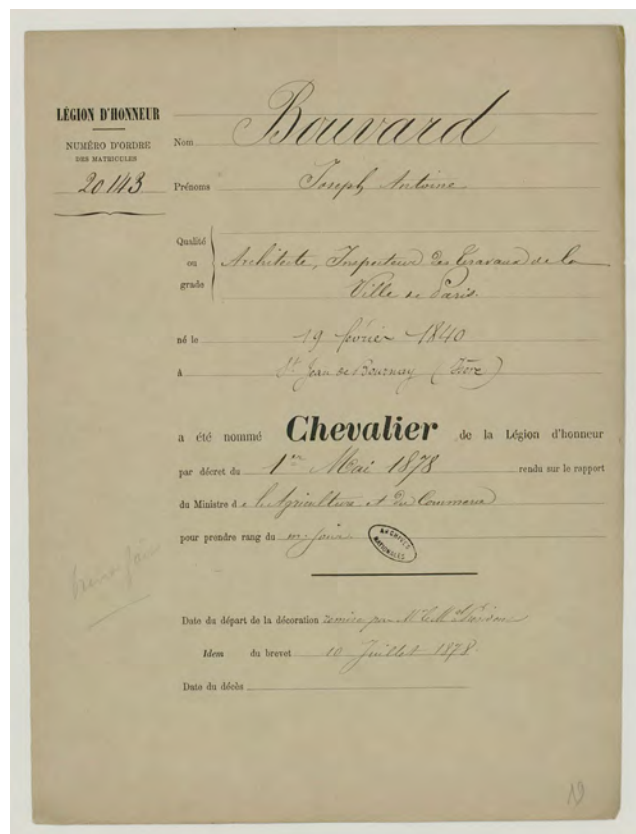 LÉGION D'HONNEUR
NUMÉRO D'ORDRE
DES MATRICULES
20143
Nom Bouvard
Prénoms Joseph Antoine
Qualité
ou
grade
Architecte, Inspecteur des Travaux de la
Ville de Paris.
né le 19 février 1840
à St Jean de Bournay (Isère)
a été nommé Chevalier de la Légion d'honneur
par décret du 1er Mai 1878 rendu sur le rapport
du Ministre de l'Agriculture et du Commerce
pour prendre rang du m. jour
ARCHIVES
NATIONALES
Date du départ de la décoration remise par Mr
Idem du brevet 10 Juillet 1878
Date du décès